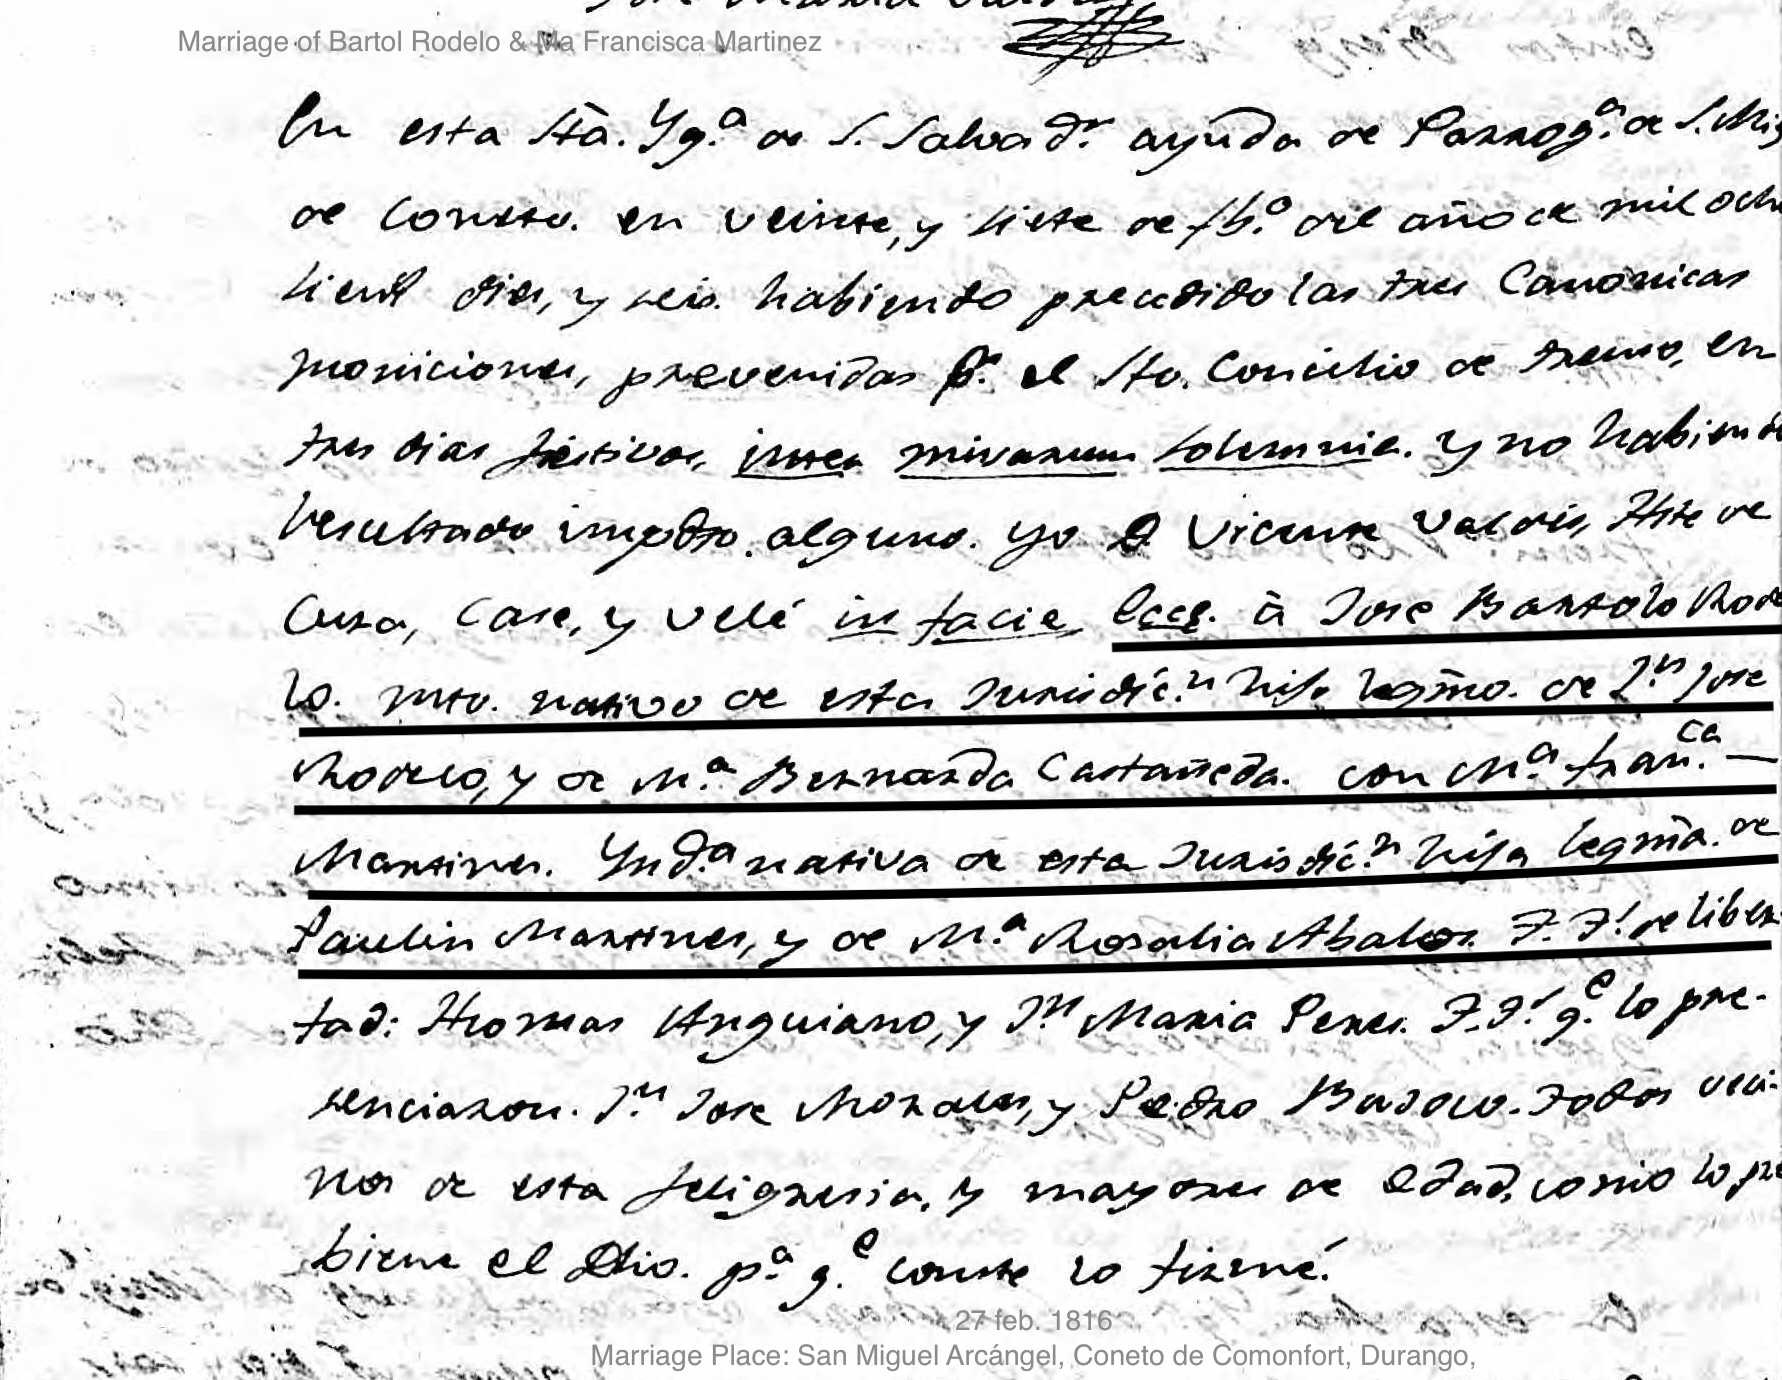 Marriage of Bartol Rodelo & Ma Francisca Martinez
En esta Sta. Yg.a de S. Salvad.r ayuda de Parroq.a de S. Mig
de Coneto. en veinte, y siete de fb.o del año de mil ocho
sient diez, y seis. habiendo precedido las tres Canonicas
moniciones, prevenidas p.r el Sto. Concilio de Trento, en
tres dias festivos, inter misarum solemnia. y no habiendo
resultado impedto. alguno. yo D Vicente Valdés, Hte de
Cura, Case, y velé in facie Eccl. à Jose Bartolo Rode
lo. mto. nativo de esta Jurisdic.n hijo legmo. de J.n Jose
Rodelo, y de M.a Bernarda Castañeda. con M.a Fran.ca —
Martines. Ynd.a nativa de esta Jurisdic.n hija legma. de
Paulin Martines, y de M.a Rosalia Abalos. T. T.s de liber
tad: Thomas Anguiano, y J.n Maria Peres. T. T.s q.e lo pre-
senciaron. J.n Jose Morales, y Pedro Todos veci-
nos de esta feligresia, y mayores de edad, como lo pre
biene el Dtio. p.a q.e conste lo firmé.
27 feb. 1816
Marriage Place: San Miguel Arcángel, Coneto de Comonfort, Durango,